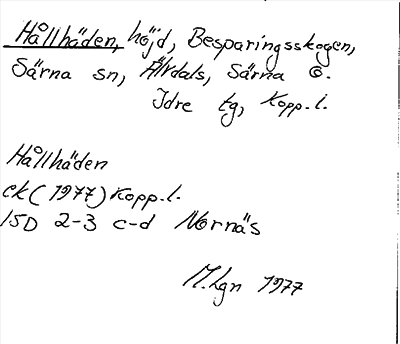 Hållhäden, höjd, Besparingsskogen,
Särna sn, Älvdals, Särna o.
Idre tg, Kopp. l.
Hållhäden
ek (1977) Kopp. l.
15D 2-3 c-d Nornäs
M. Lgn 1977